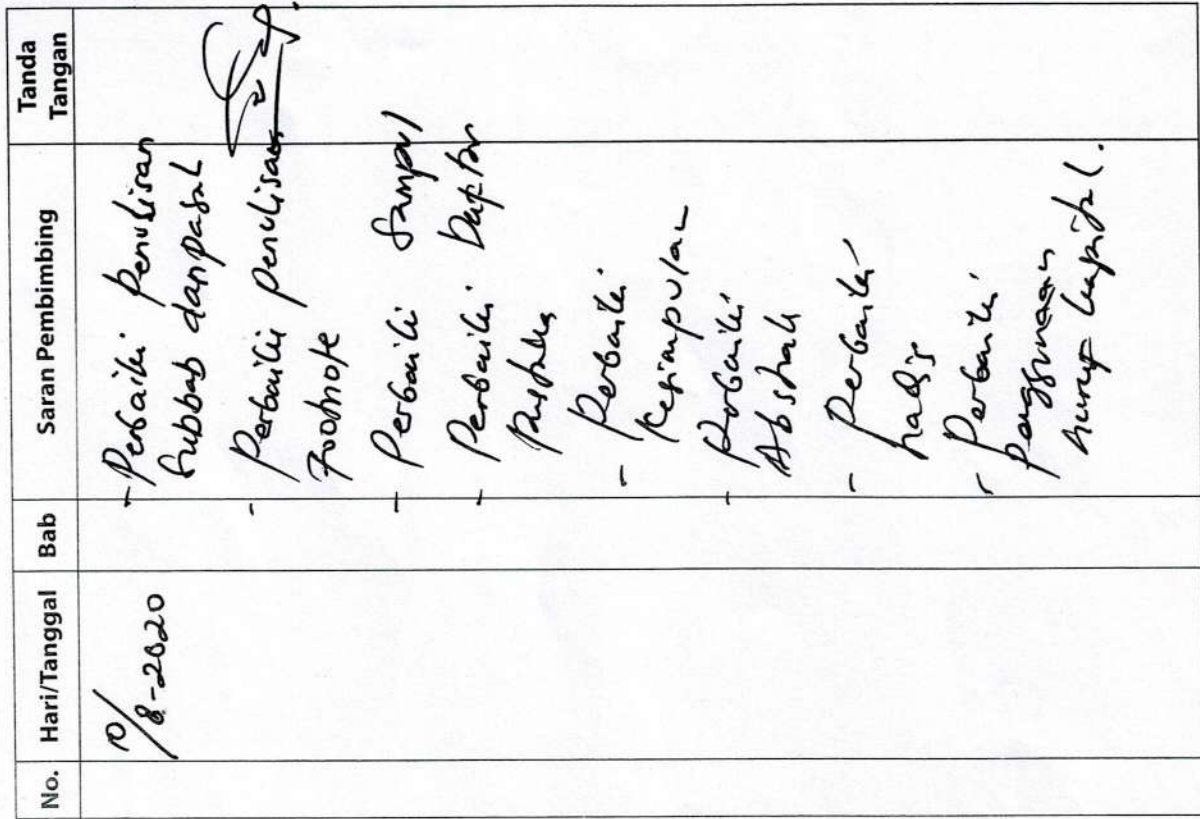 No. Hari/Tanggal Bab Saran Pembimbing Tanda Tangan
10/8-2020
- Perbaiki Penulisan
Subbab dan pasal
- Perbaiki penulisan
Footnote
- Perbaiki Sampul
- Perbaiki Daptar
Pustaka
- Perbaiki
Kesimpulan
- Perbaiki
Abstrak
- Perbaiki
hadis
- Perbaiki
penggunaan
huruf kapital.